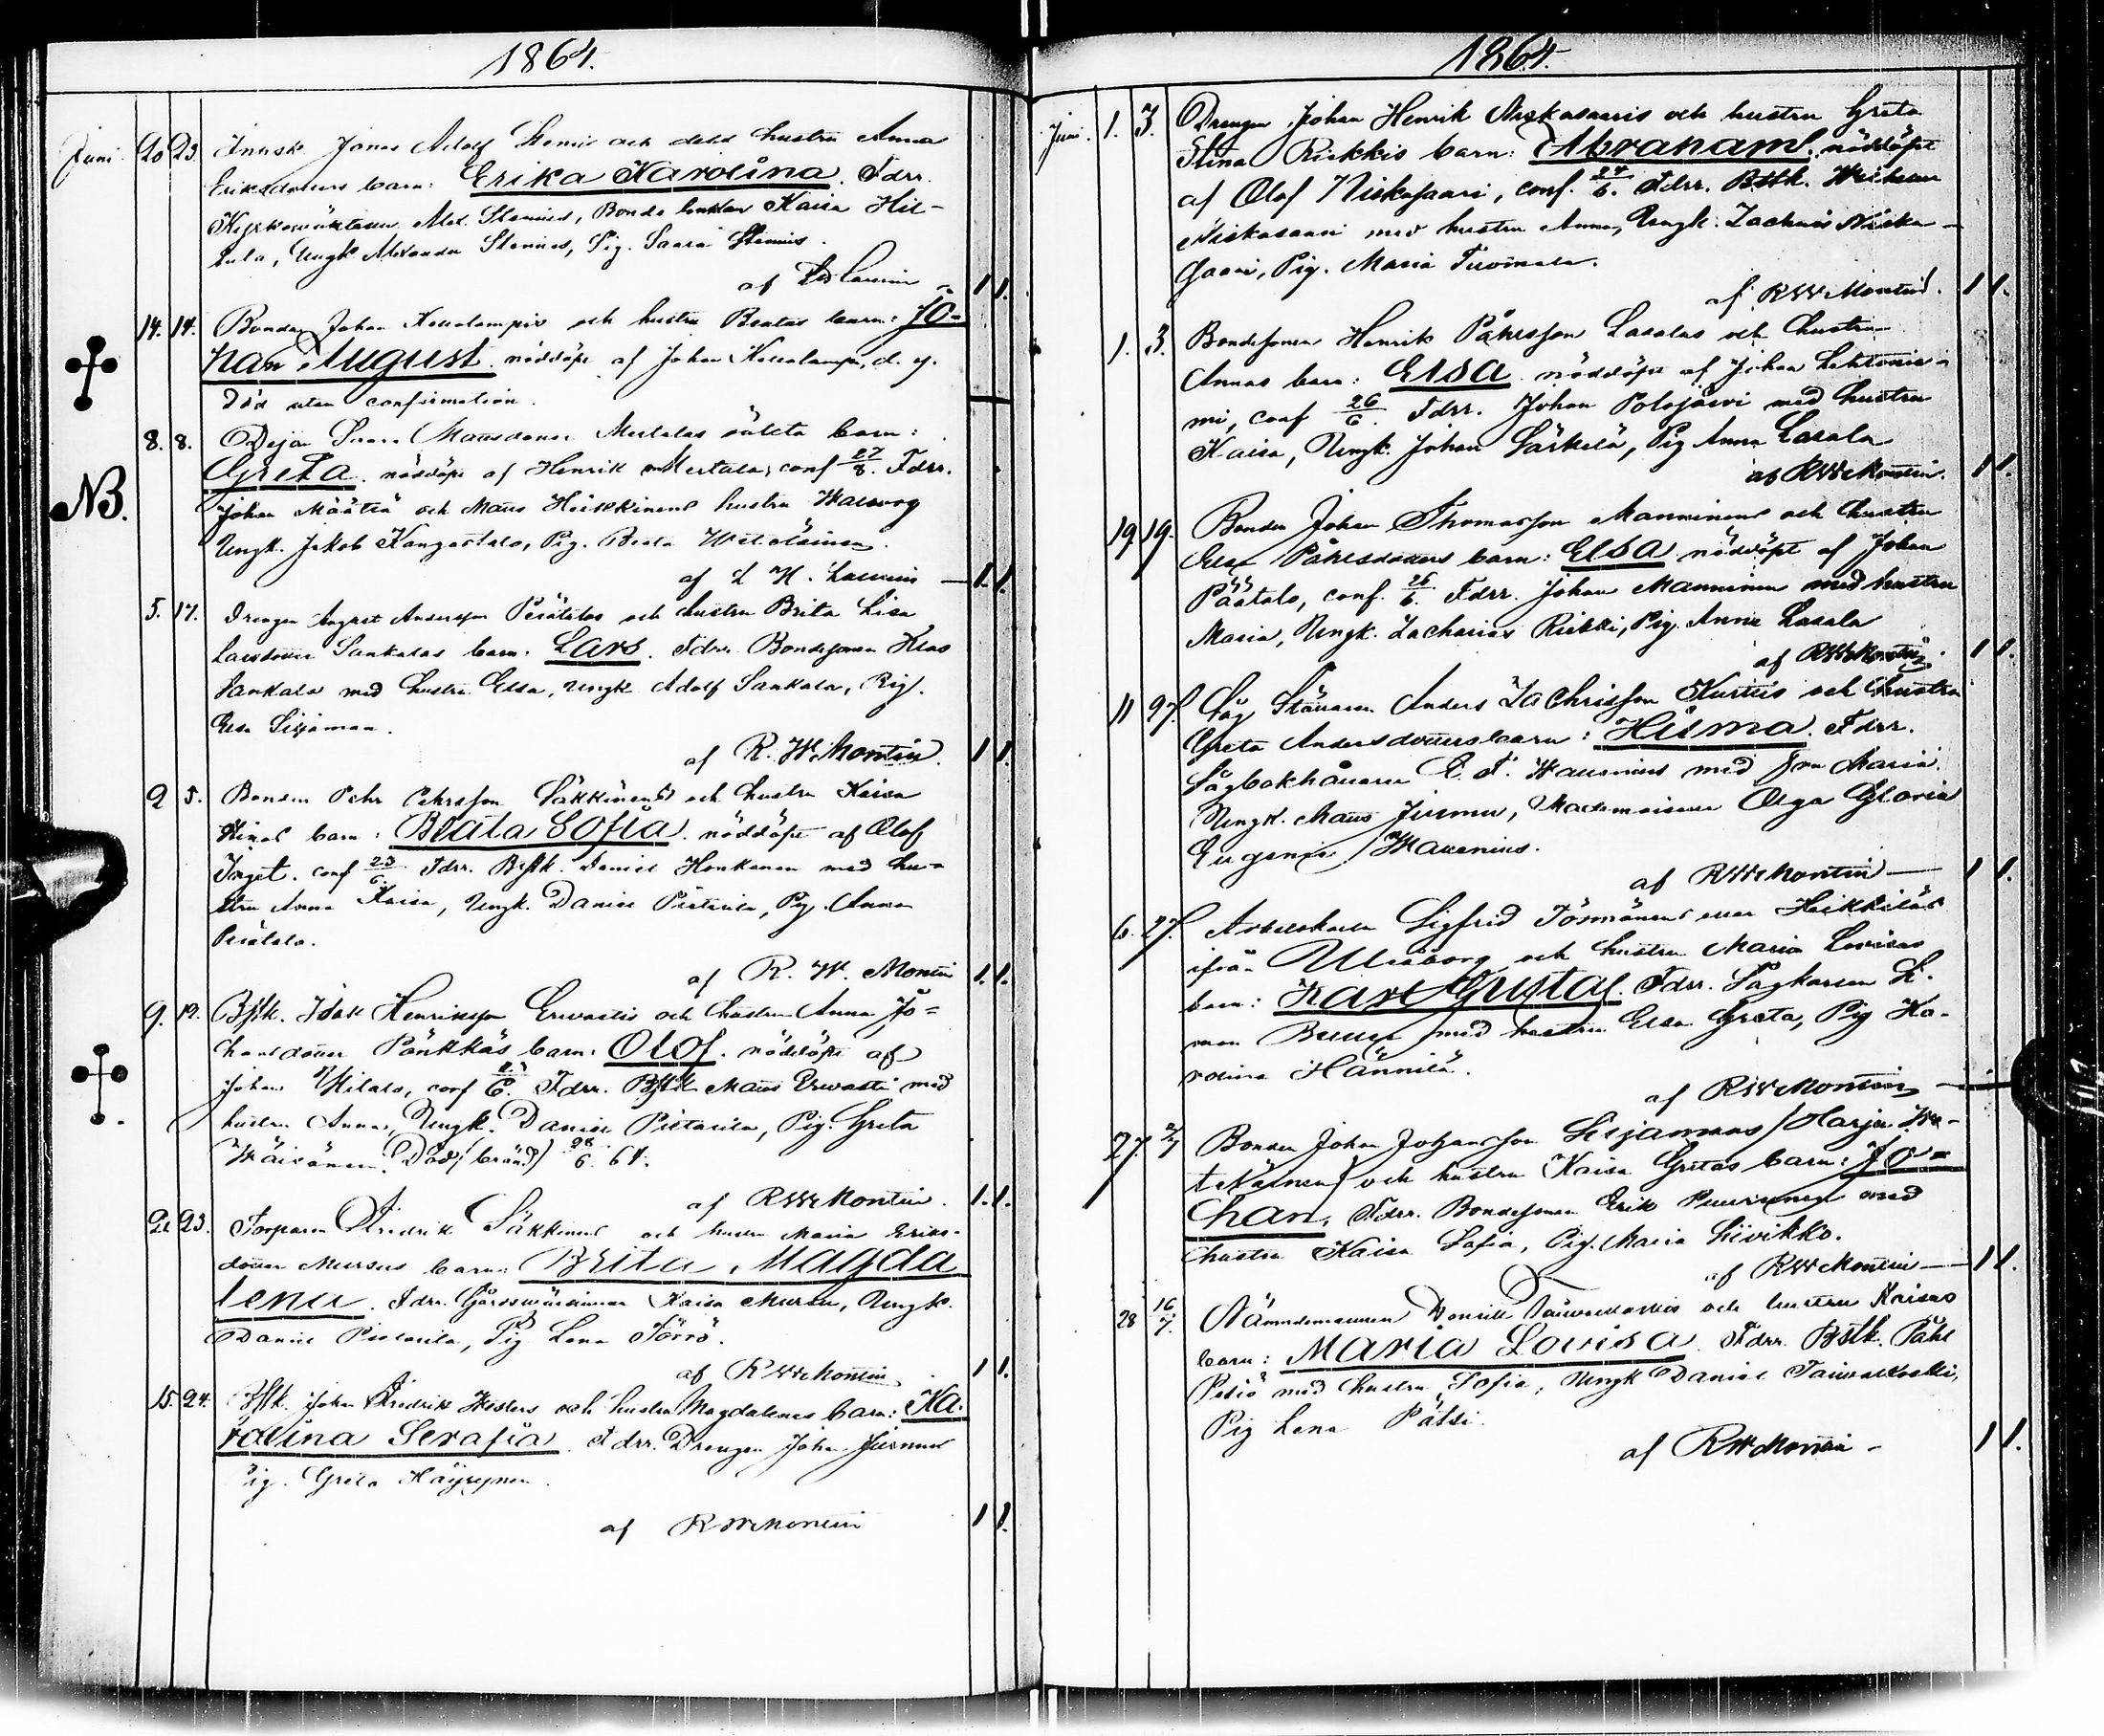 1864.
Juni 20 23. Inhsk Jonas Adolf Stenii och dess hustru Anna
Eriksdotters barn: Erika Karolina. Fdrr.
Kyrkowäktaren Alex. Stenius, Bonde Kaisa Hil-
tula, Ungk Alexander Stenius, Pig. Saara Stenius.
af Laurin 1 1.
14. 14. Bonden Johan Koualampis och hustru Beatas barn: Jo-
han August. nöddöpt af Johan Koualampi, d. y.
Död utan confirmation.
8. 8. Dejan Saara Mansdotter Mertalas oäkta barn:
NB. Greta. nöddöpt af Henrik Mertala, conf 27/8. Fdrr.
Johan Määttä och Måns Heikkinens hustru Walborg
Ungk. Jakob Kangastalo, Pig. Beata
af L H. Laurin 1. 1.
5. 17. Drengen August Andersson Perätalos och hustru Brita Lisa
Larsdotter Sankalas barn: Lars. Fdrr Bondesonen Klas
Sankala med hustru Elsa, Ungk Adolf Sankala, Pig.
Elsa Siejaman.
af R. W. Montin 1 1.
9 5. Bonden Pehr Pehrsson Säkkinens och hustru Kaisa
Stinas barn: Beata Sofia. nöddöpt af Olof
Inget. conf 23/6. Fdrr. Bstk. Daniel Honkanen med hu-
stru Anna Kaisa, Ungk. Daniel Pietarila, Pig. Anna
Perätalo.
af R. W. Montin 1. 1.
9. 12. Bstk. Isak Henriksson Erwastis och hustru Anna Jo=
hansdotter Pönkkäs barn: Olof. nöddöpt af
Johan Ylitalo, conf 6. Fdrr. Bstk Måns Erwasti med
hustru Anna, Ungk. Daniel Pietarila, Pig. Greta
Wäisänen. Död (bränd) 28/6. 64.
af RWMontin. 1. 1.
21 23. Torparen Fredrik Säkkinens och hustru Maria Eriks-
dotter Mursus barn: Brita Magda
lena. Fdrr. Gårdswärdinnan Kaisa Mursu, Ungk.
Daniel Pietarila, Pig Lena Törrö.
af RWMontin 1 1.
15. 24. Bstk. Johan Fredrik Heslers och hustru Magdalenas barn: Ka-
rolina Serafia. Fdrr. Drengen Johan Juornas
Pig. Greta Häyrynen.
af RWMontin 1 1.
1864.
Juni. 1. 3. Drengen Johan Henrik Niskasaaris och hustru Greta
Stina Riekkis barn: Abraham. nöddöpt
af Olof Niskasaari, conf. 24/6. Fdrr. Bstk. Wilhelm
Niskasaari med hustru Anna, Ungk. Zachris Niska-
saari, Pig. Maria Tuomala.
af RWMontin. 1 1.
1. 3. Bondesonen Henrik Påhlsson Lasalas och hustru
Annas barn: Elsa nöddöpt af Johan Lehtonie-
mi, conf 26/6. Fdrr. Johan Polojärvi med hustru
Kaisa, Ungk. Johan Särkelä, Pig Anna Lasala
af RWMontin. 1 1.
19 19. Bonden Johan Thomasson Manninens och hustru
Elsa Påhlsdotters barn: Elsa nöddöpt af Johan
Päätalo, conf. 26/6. Fdrr. Johan Manninen med hustru
Maria, Ungk. Zacharias Riekki, Pig. Anna Lasala
af RWMontin. 1 1.
11 27. Såg Ställaren Anders Zachrisson Kurttis och hustru
Greta Andersdotters barn: Hilma. Fdrr.
Sågbokhållaren E. F. Wavenius med fru Maria.
Ungk. Måns Juurmu, Mademoisellen Olga Gloria
Eugenie Wavenius.
af RWMontin 1 1.
6. 27. Arbetskarlen Sigfrid Törmänens eller Heikkiläs
ifrån Uleåborg och hustru Maria Lovisas
barn: Karl Gustaf. Fdrr. Sågkarlen H.
man med hustru Elsa Greta, Pig Ka-
rolina Hännilä.
af RWMontin
27. 2/7 Bonden Johan Johansson Siejamans /Harju
och hustru Kaisa Gretas barn: Jo=
han. Fdrr. Bondesonen Erik Puurunen med
hustru Kaisa Sofia, Pig. Maria Siivikko.
af RWMontin 1 1.
28 16/7. Nämndemannen Henrik Taiwalkoskis och hustru Kaisas
barn: Maria Lovisa Fdrr. Bstk. Påhl
Pesiö med hustru Sofia, Ungk Daniel Taiwalkoski,
Pig Lena Pätsi.
af RWMontin 1 1.